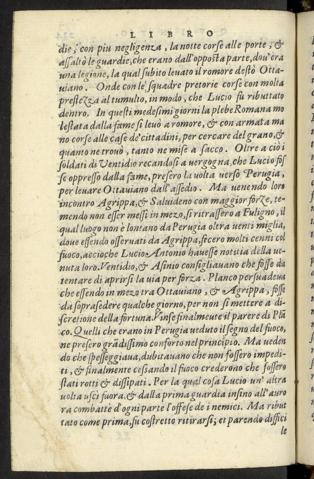 LIBRO
die, con piu negligenza, la notte corse alle porte, &
assaltò le guardie, che erano dall'opposta parte, dou'era
una legione, la qual subito leuato il romore destò Otta-
uiano. Onde con le squadre pretorie corse con molta
prestezza al tumulto, in modo, che Lucio fu ributtato
dentro. In questi medesimi giorni la plebe Romana mo
lestata dalla fame si leuò a romore, & con armata ma
no corse alle case de' cittadini, per cercare del grano, &
quanto ne trouò, tanto ne mise a sacco. Oltre a ciò i
soldati di Ventidio recandosi a vergogna, che Lucio fos
se oppresso dalla fame, presero la uolta uerso Perugia,
per leuare Ottauiano dall'assedio. Ma uenendo loro
incontro Agrippa, & Saluideno con maggior forze, te-
mendo non esser messi in mezo, si ritrassero a Fuligno, il
qual luogo non è lontano da Perugia oltra uenti miglia,
doue essendo osseruati da Agrippa, fecero molti cenni col
fuoco, accioche Lucio Antonio hauesse notitia della ue-
nuta loro. Ventidio, & Asinio consigliauano che fosse da
tentare di aprirsi la uia per forza. Planco persuadeua
che essendo in mezo tra Ottauiano, & Agrippa, fosse
da soprasedere qualche giorno, per non si mettere a di-
scretione della fortuna. Vinse finalmente il parere di Plã
co. Quelli che erano in Perugia ueduto il segno del fuoco,
ne presero grãdissimo conforto nel principio. Ma ueden
do che spesseggiaua, dubitauano che non fossero impedi-
ti, & finalmente cessando il fuoco crederono che fossero
stati rotti & dissipati. Per la qual cosa Lucio un' altra
uolta uscì fuora, & dalla prima guardia insino all'auro
ra combattè d'ogni parte l'offese de i nemici. Ma ribut
tato come prima, fu costretto ritirarsi; et parendo diffici
le